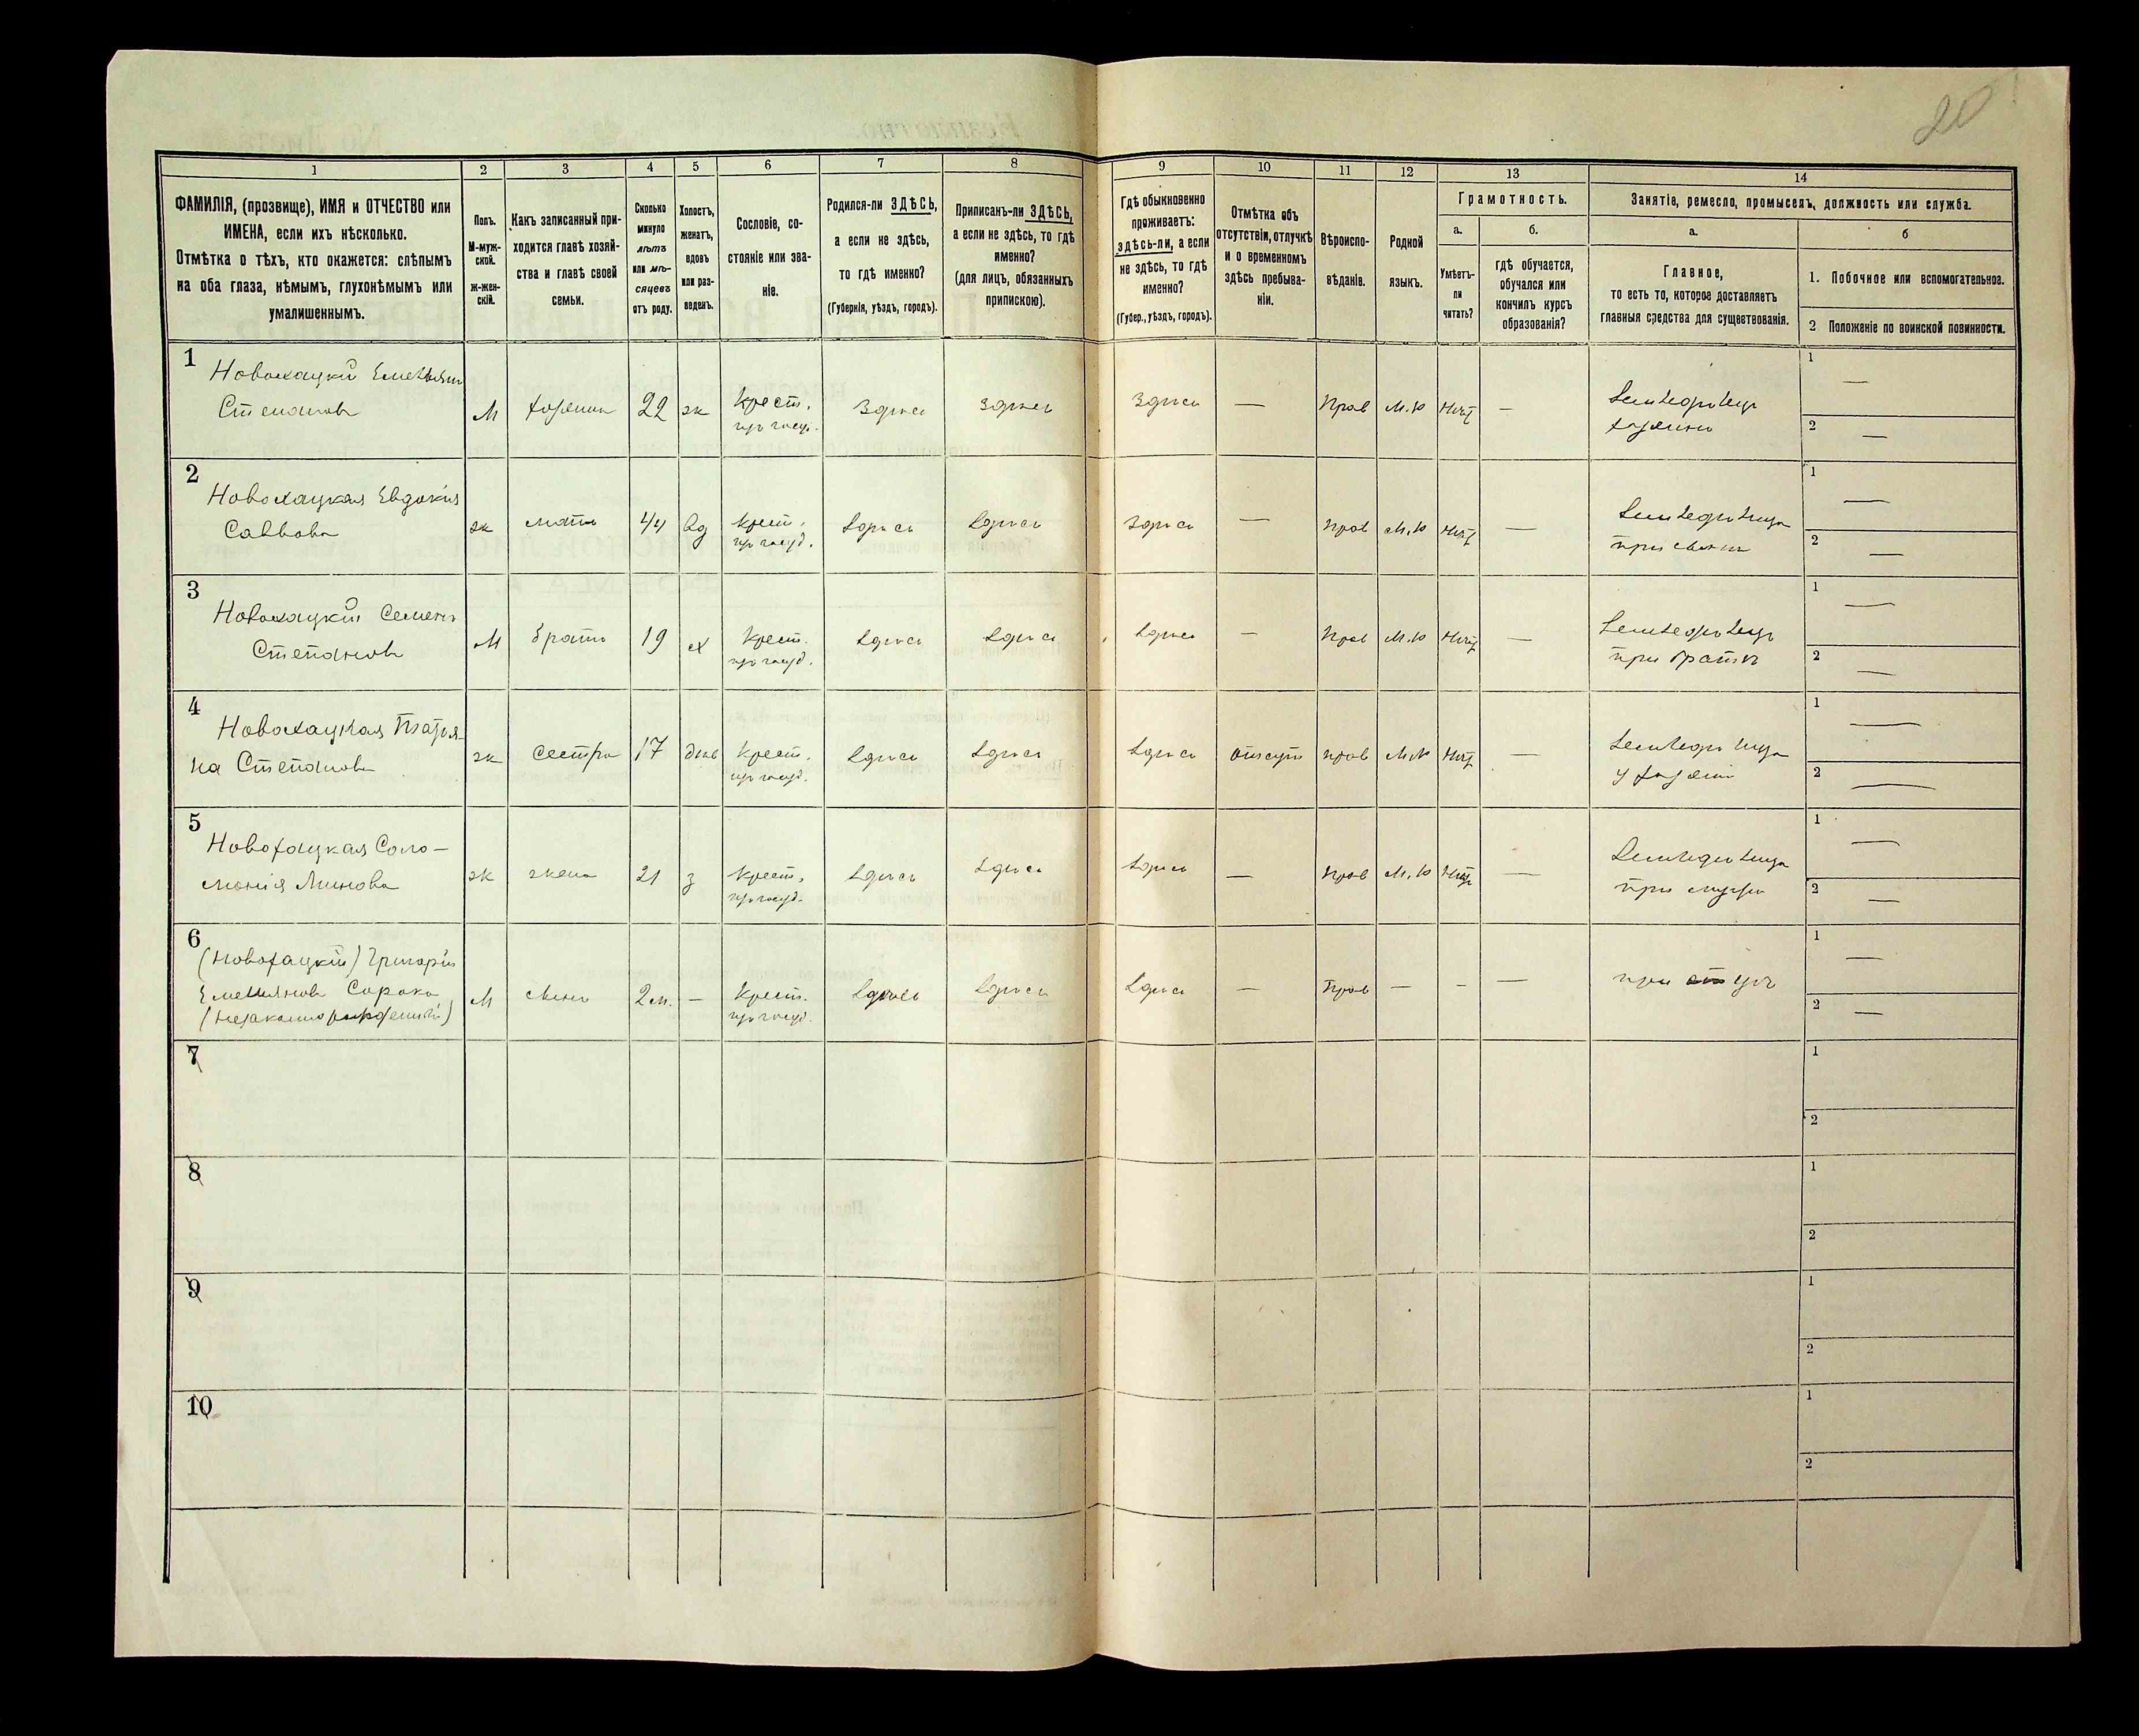 20
1 2 3 4 5 6 7 8 9 10 11 12 13 14
ФАМИЛІЯ, (прозвище), ИМЯ и ОТЧЕСТВО или
ИМЕНА, если ихъ нѣсколько.
Отмѣтка о тѣхъ, кто окажется: слѣпымъ
на оба глаза, нѣмымъ, глухонѣмымъ или
умалишеннымъ.
Полъ.
М-муж-
ской.
Ж-жен-
скій.
Какъ записанный при-
ходится главѣ хозяй-
ства и главѣ своей
семьи.
Сколько
минуло
лѣтъ
или мѣ-
сяцевъ
отъ роду.
Холостъ,
женатъ,
вдовъ
или раз-
веденъ.
Сословіе, со-
стояніе или зва-
ніе.
Родился-ли ЗДѢСЬ,
а если не здѣсь,
то гдѣ именно?
(Губернія, уѣздъ, городъ).
Приписанъ-ли ЗДѢСЬ,
а если не здѣсь, то гдѣ
именно?
(для лицъ, обязанныхъ
припискою).
Гдѣ обыкновенно
проживаетъ:
здѣсь-ли, а если
не здѣсь, то гдѣ
именно?
(Губер., уѣздъ, городъ).
Отмѣтка объ
отсутствіи, отлучкѣ
и о временномъ
здѣсь пребыва-
ніи.
Вѣроиспо-
вѣданіе.
Родной
языкъ.
Грамотность.
а.
Умѣетъ-
ли
читать?
б.
гдѣ обучается,
обучался или
кончилъ курсъ
образованія?
Занятіе, ремесло, промыселъ, должность или служба.
а.
Главное,
то есть то, которое доставляетъ
главныя средства для существованія.
б
1. Побочное или вспомогательное.
2 Положеніе по воинской повинности.
1
Новохацкій Емельян
Степановъ
М хозяинъ 22 ж Крест.
изъ госуд.
Здѣсь Здѣсь Здѣсь — Прав М.р Нѣт —
Земледѣлецъ
хозяинъ
1 —
2 —
2
Новохацкая Евдокія
Саввова
ж мать 44 вд Крест.
изъ госуд.
Здѣсь Здѣсь Здѣсь — прав М.р Нѣт —
Земледѣлица
при сынѣ
1 —
2 —
3
Новохацкій Семенъ
Степановъ
М братъ 19 х Крест.
изъ госуд.
Здѣсь Здѣсь Здѣсь — прав М.р Нѣт —
Земледѣлецъ
при братѣ
1 —
2 —
4
Новохацкая Татья-
на Степанова
ж сестра 17 дѣв Крест.
изъ госуд.
Здѣсь Здѣсь Здѣсь отсутъ прав М.р Нѣт —
Земледѣлица
1 —
2 —
5
Новохацкая Соло-
монія Минова
ж жена 21 з Крест.
изъ госуд.
Здѣсь Здѣсь Здѣсь — прав М.р Нѣт —
Земледѣлица
при мужѣ
1 —
2 —
6
(Новохацкій) Григорій
Емельяновъ Сорока
(незаконнорожденный)
М сынъ 2 м. — Крест.
изъ госуд.
Здѣсь Здѣсь Здѣсь — Прав — - —
при отцѣ
1 —
2 —
7
1
2
8
1
2
9
1
2
10
1
2